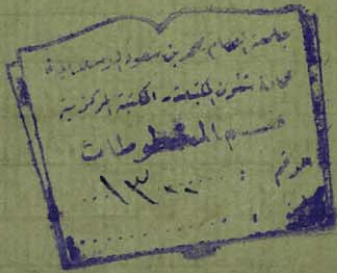 جامعة الامام محمد بن سعود الاسلامية
عمادة شئون المكتبات المكتبة المركزية
قسم المخطوطات
رقم : ١٣٠٠